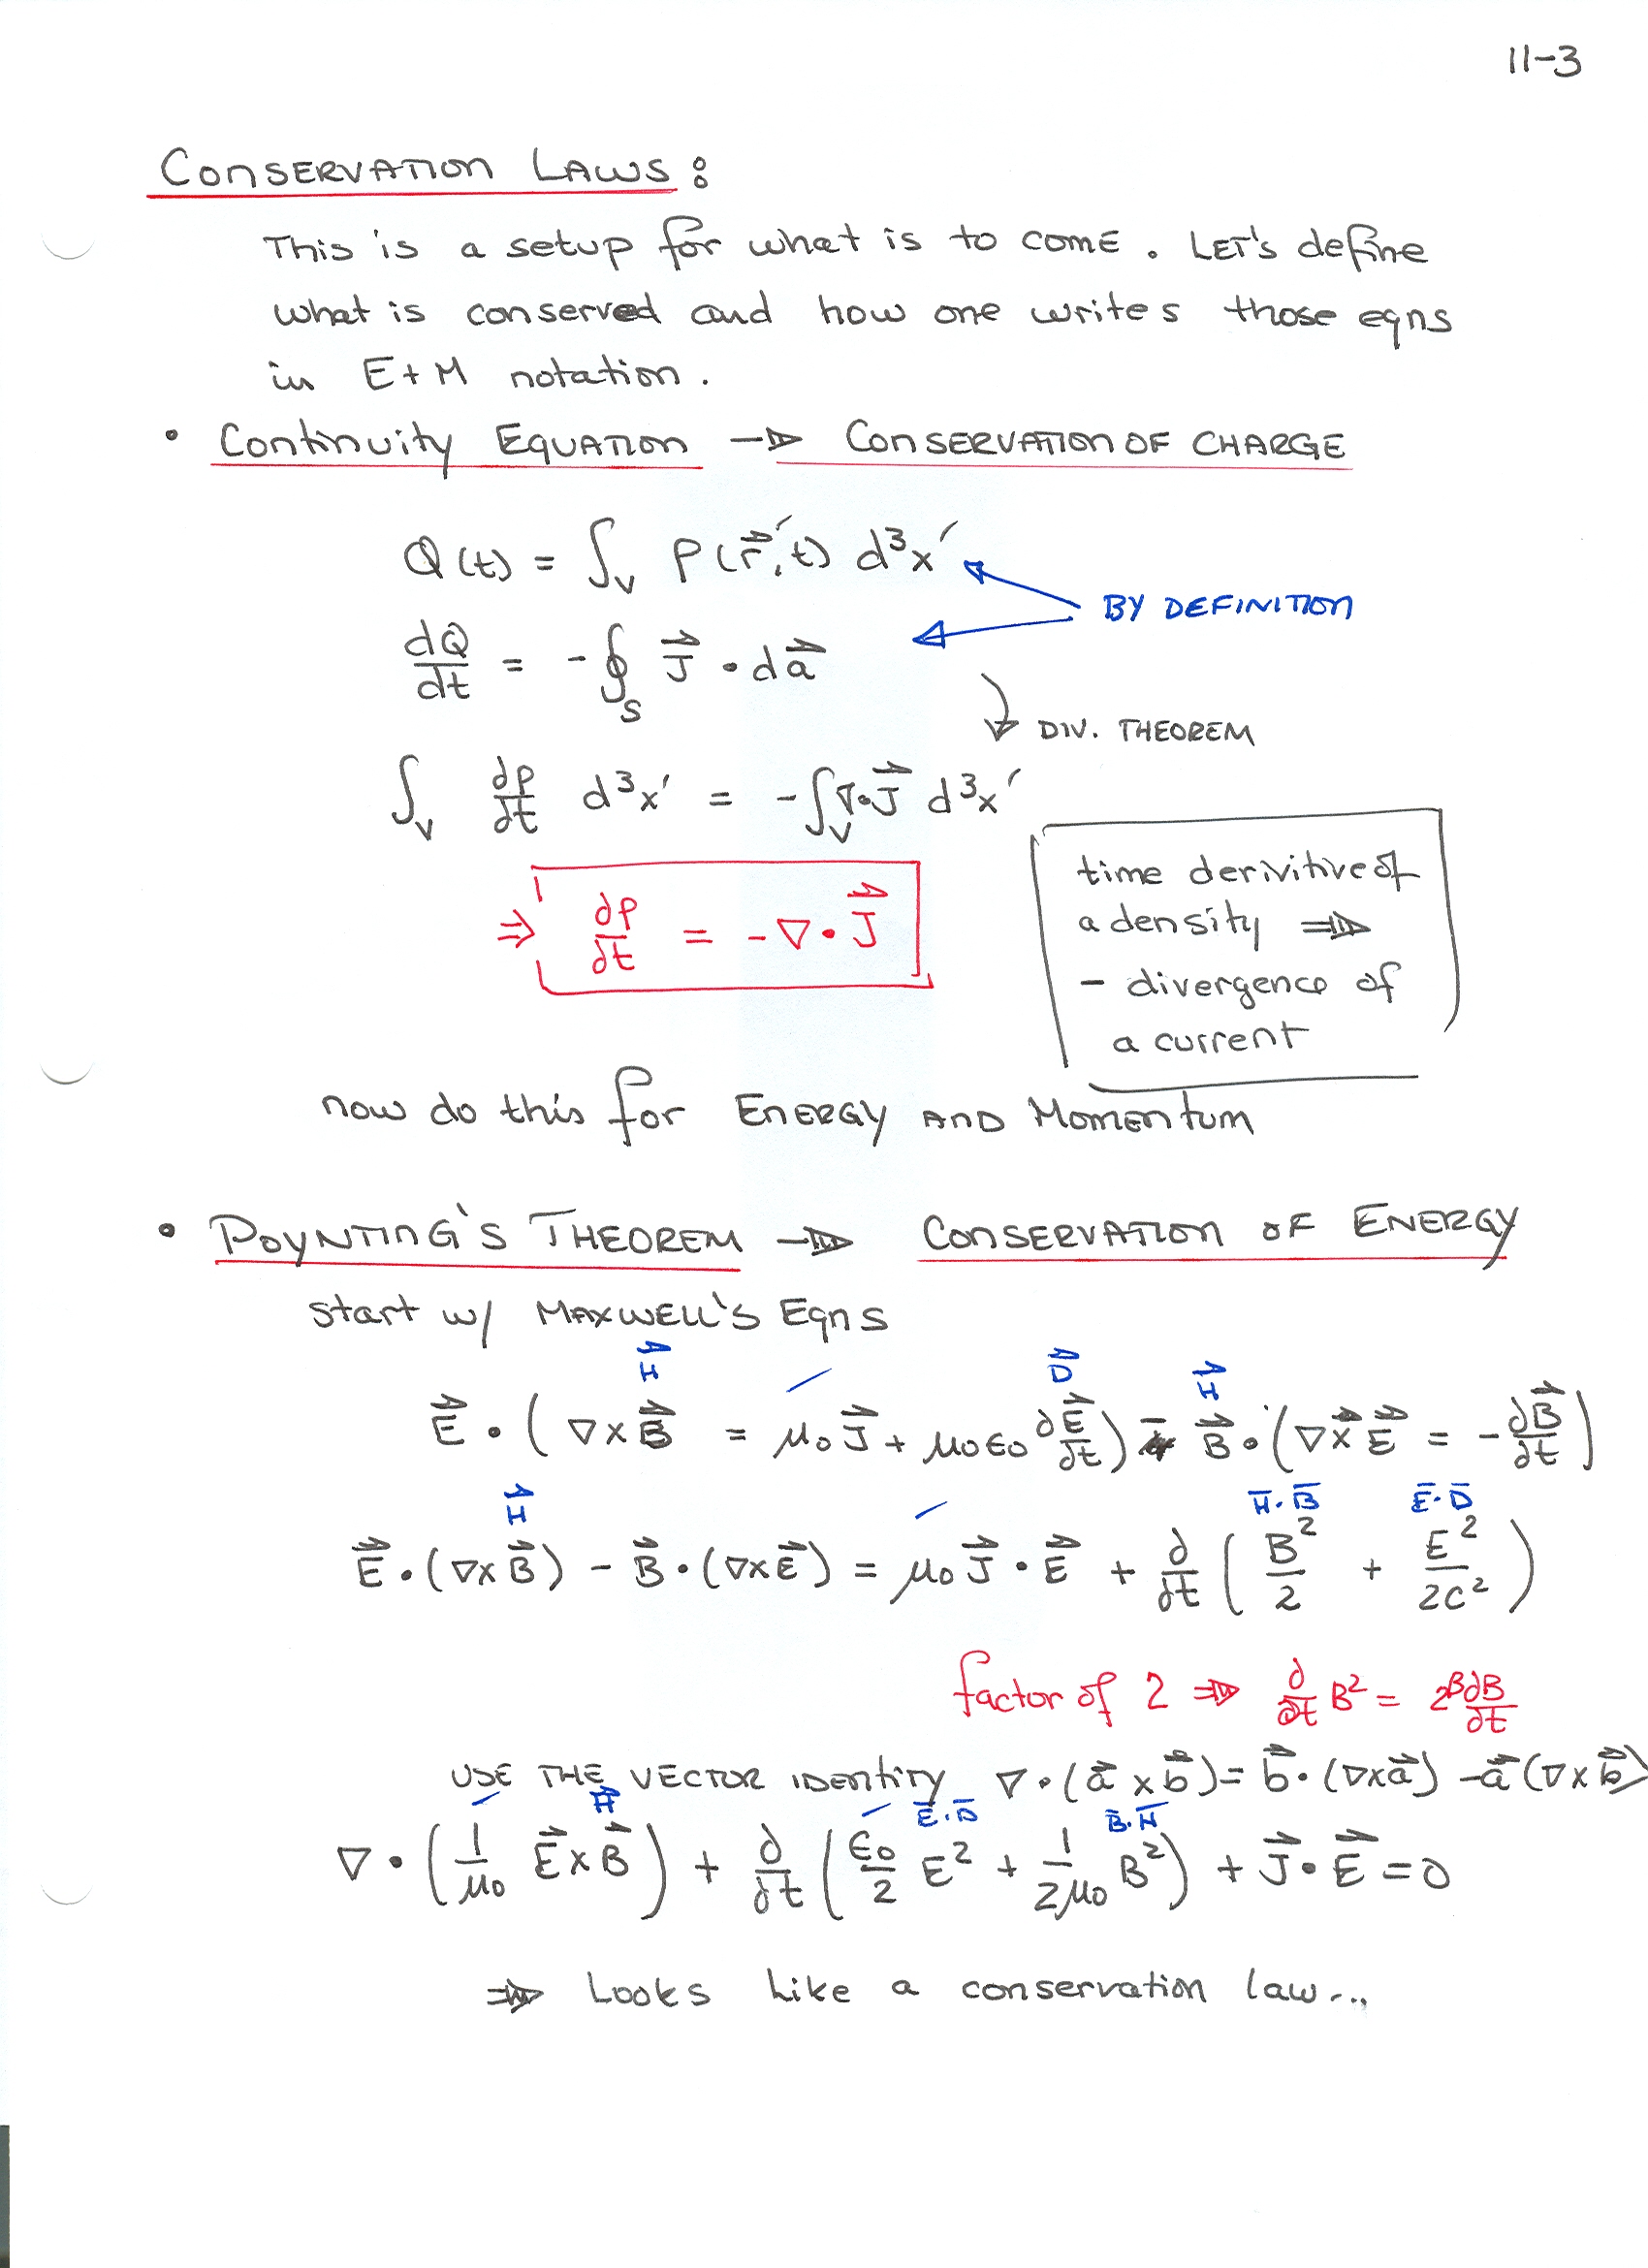 11-3
CONSERVATION LAWS:
This is a setup for what is to come. LET'S define
what is conserved and how one writes those eqns
in E+M notation.
• Continuity EQUATION → CONSERVATION OF CHARGE
Q(t) = ∫_V ρ(r⃗′,t) d³x′
BY DEFINITION
dQ/dt = -∮_S J⃗ • da⃗
DIV. THEOREM
∫_V ∂ρ/∂t d³x′ = -∫_V ∇•J⃗ d³x′
⇒ ∂ρ/∂t = -∇•J⃗
time derivitive of
a density ⇒
- divergence of
a current
now do this for ENERGY AND Momentum
• POYNTING'S THEOREM → CONSERVATION OF ENERGY
start w/ MAXWELL'S Eqns
H⃗ / D⃗ H⃗
E⃗ • (∇×B⃗ = μ₀J⃗ + μ₀ε₀ ∂E⃗/∂t) - B⃗ • (∇×E⃗ = -∂B⃗/∂t)
H⃗ / H̄·B̄ Ē·D̄
E⃗ • (∇×B⃗) - B⃗ • (∇×E⃗) = μ₀J⃗ • E⃗ + ∂/∂t (B²/2 + E²/2c²)
factor of 2 ⇒ ∂/∂t B² = 2B∂B/∂t
USE THE VECTOR IDENTITY ∇•(a⃗×b⃗) = b⃗•(∇×a⃗) -a⃗(∇×b⃗)
/ H⃗ / Ē·D̄ B̄·H̄
∇•(1/μ₀ E⃗×B⃗) + ∂/∂t (ε₀/2 E² + 1/2μ₀ B²) + J⃗•E⃗ = 0
⇒ Looks like a conservation law...